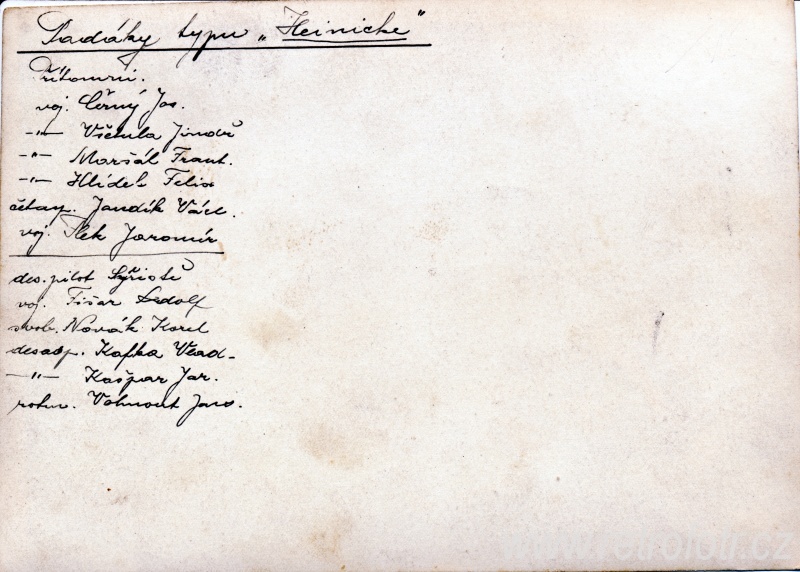 Padáky typu „Heinicke“
Přítomni.
voj. Černý Jos.
-"- Všetula Jindř
-"- Maršál Frant.
-"- Hlídek Felix
četař. Jandík Václ.
voj. Plek Jaromír
des. pilot Syřiště
voj. Fišar
svob. Novák Karel
desasp. Kafka Vlad-
-"- Kašpar Jar.
rotm. Vohnout Jaro.
www.retrofoti.cz